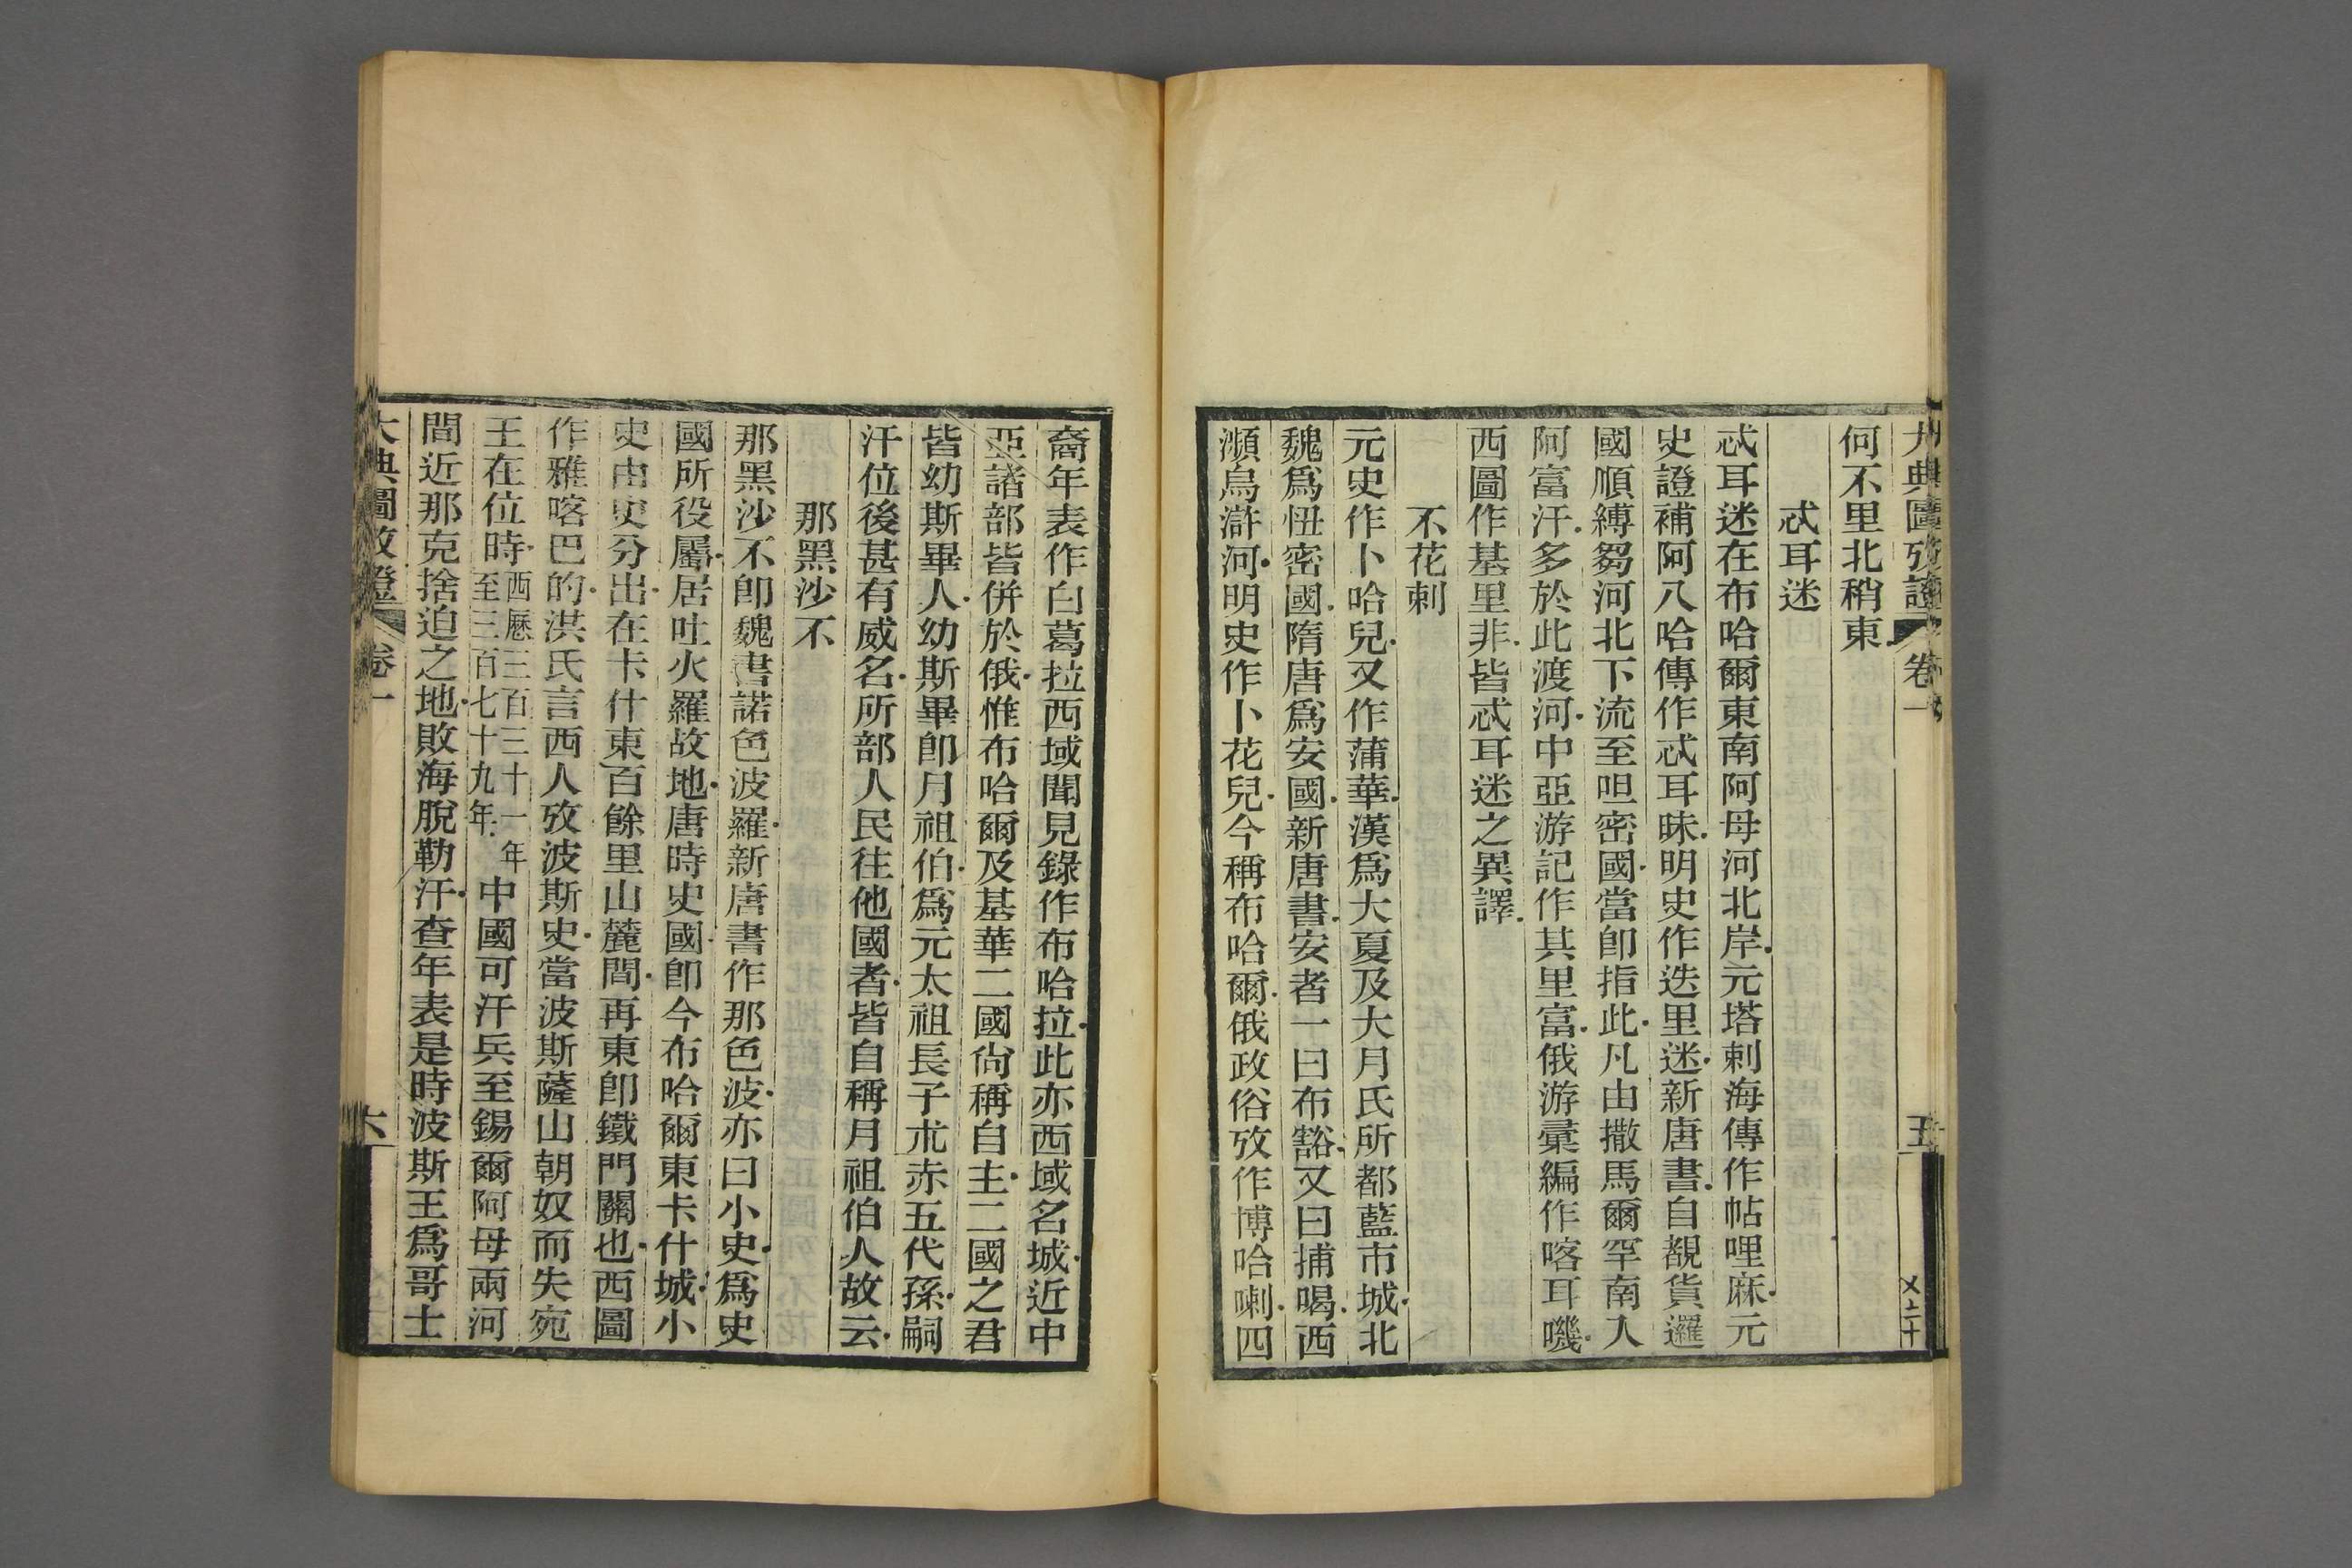 大典圖攷證 卷一 五
何不里北稍東
忒耳迷
忒耳迷在布哈爾東南阿母河北岸元塔剌海傳作帖哩麻元
史證補阿八哈傳作忒耳昧明史作迭里迷新唐書自覩貨邏
國順縛芻河北下流至呾密國當卽指此凡由撒馬爾罕南入
阿富汗多於此渡河中亞游記作其里富俄游彙編作喀耳嘰
西圖作基里非皆忒耳迷之異譯
不花剌
元史作卜哈兒又作蒲華漢爲大夏及大月氏所都藍市城北
魏爲忸密國隋唐爲安國新唐書安者一曰布豁又曰捕喝西
瀕烏滸河明史作卜花兒今稱布哈爾俄政俗攷作博哈喇四
裔年表作白葛拉西域聞見錄作布哈拉此亦西域名城近中
亞諸部皆併於俄惟布哈爾及基華二國尙稱自主二國之君
皆幼斯畢人幼斯畢卽月祖伯爲元太祖長子朮赤五代孫嗣
汗位後甚有威名所部人民往他國者皆自稱月祖伯人故云
那黑沙不
那黑沙不卽魏書諾色波羅新唐書作那色波亦曰小史爲史
國所役屬居吐火羅故地唐時史國卽今布哈爾東卡什城小
史由史分出在卡什東百餘里山麓間再東卽鐵門關也西圖
作雅喀巴的洪氏言西人攷波斯史當波斯薩山朝奴而失宛
王在位時西歷三百三十一年至三百七十九年中國可汗兵至錫爾阿母兩河
間近那克捨迫之地敗海脫勒汗查年表是時波斯王爲哥士
大典圖攷證 卷一 六